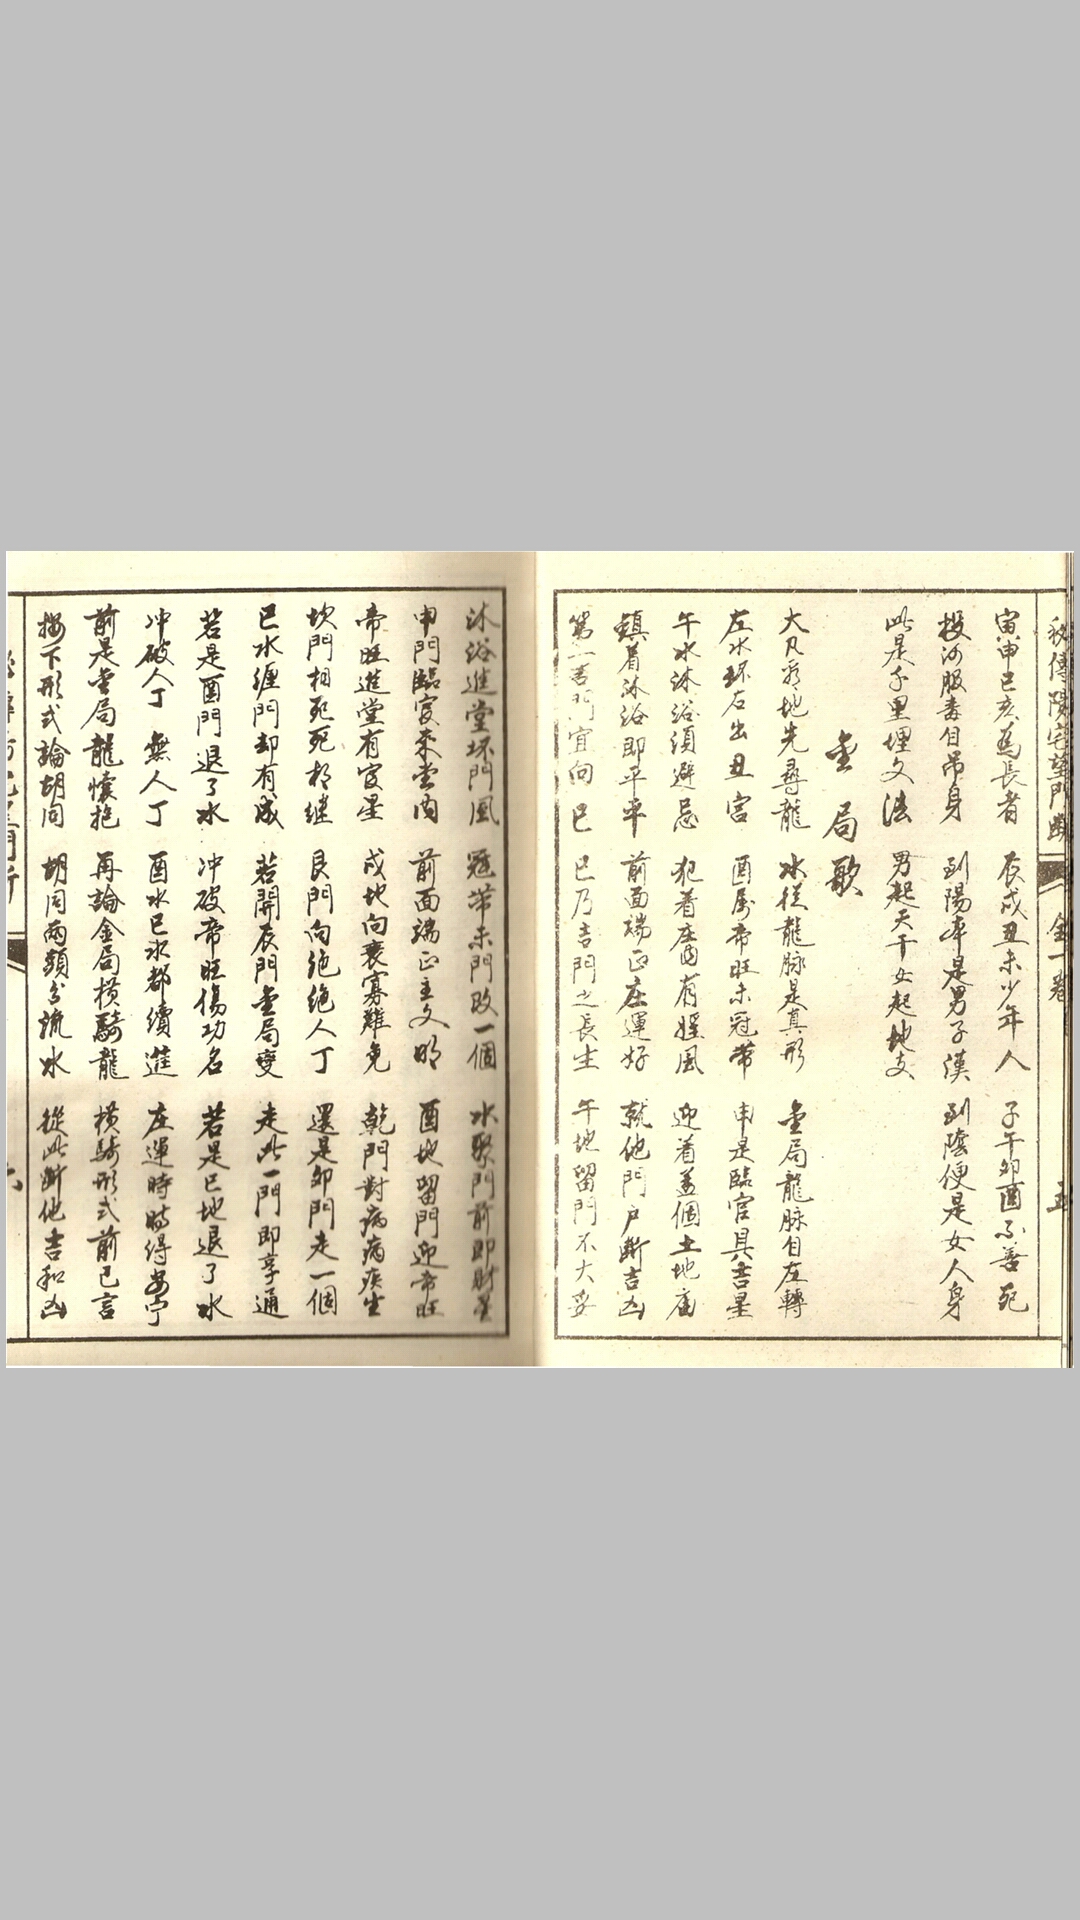 秘傳陽宅望門斷 全一卷 五
寅申巳亥為長者 辰戌丑未少年人 子午卯酉不善死
投河服毒自吊身 到陽本是男子漢 到陰便是女人身
此是千里埋文法 男起天干女起地支
金局歌
大凡看地先尋龍 水從龍脉是真形 金局龍脉自左轉
左水环右出丑宮 酉属帝旺未冠帶 申是臨官具吉星
午水沐浴須避忌 犯着庄內有婬風 迎着盖個土地庙
鎮着沐浴即平平 前面端正庄運好 就他門戶斷吉凶
第一吉門宜向巳 巳乃吉門之長生 午地留門不大妥
沐浴進堂坏門風 冠帶未門改一個 水聚門前即財星
申門臨官來堂內 前面端正主文明 酉地留門迎帝旺
帝旺進堂有官星 戌地向衰寡難免 乾門對病病疾生
坎門相死死相继 艮門向绝绝人丁 還是卯門走一個
巳水缠門却有成 若開辰門金局變 走此一門即享通
若是酉門退了水 冲破帝旺傷功名 若是巳地退了水
冲破人丁無人丁 酉水巳水都續進 庄運時時得安宁
前是金局龍懷抱 再論金局橫騎龍 橫騎形式前已言
按下形式論胡同 胡同兩類分流水 從此斷他吉和凶